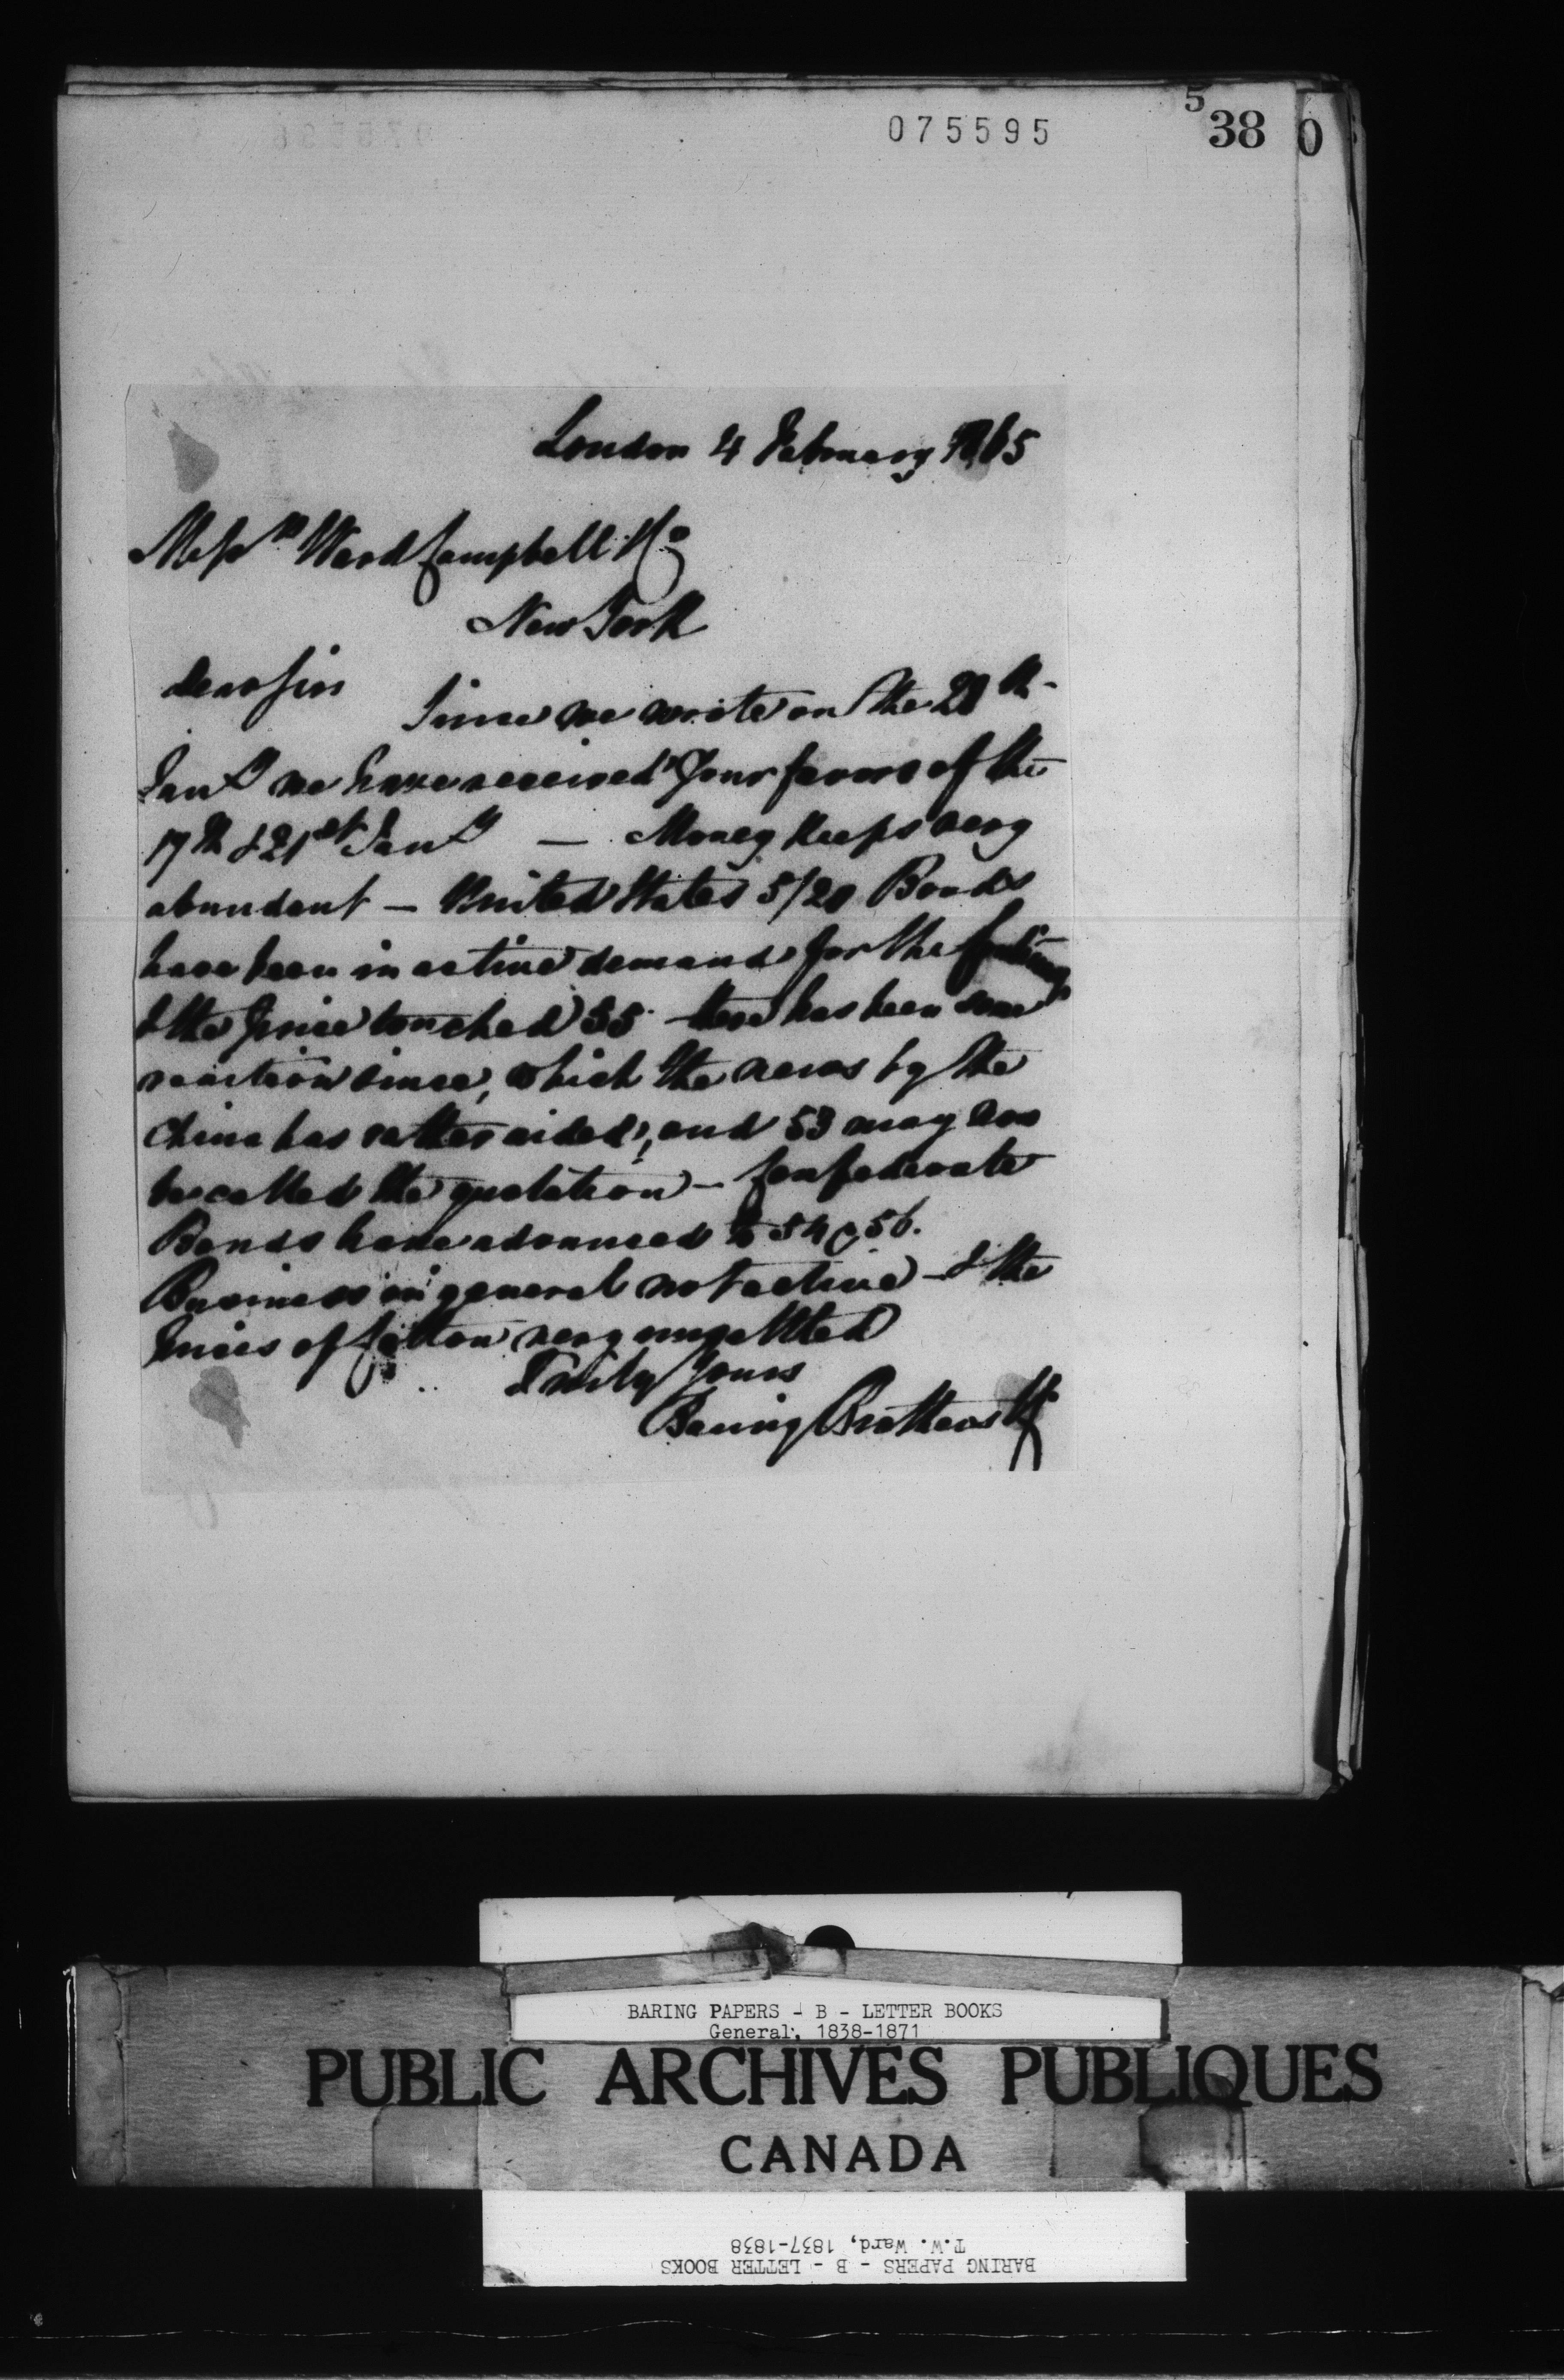 075595
5
38
0
London 4 February 1865
Messrs Ward Campbell & Co
New York
Dear Sirs
Since we wrote on the 28th
Jany we have received your favors of the
17th & 21st Jany — Money keeps very
abundant — United States 5/20 Bonds
have been in active demand for the
& the price touched 55 there has been some
reaction since, which the news by the
China has rather aided, and 53 may now
be called the quotation — Confederate
Bonds have advanced to 54 @ 56.
Business in general not active — & the
prices of Cotton very unsettled
Truly Yours
Baring Brothers & Co
BARING PAPERS - B - LETTER BOOKS
General, 1838-1871
PUBLIC ARCHIVES PUBLIQUES
CANADA
BARING PAPERS - B - LETTER BOOKS
T.W. Ward, 1837-1838